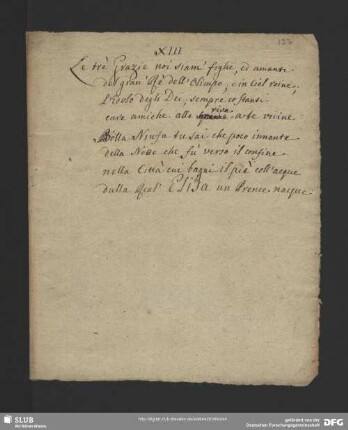 XIII
Le trè Grazie noi siam' figlie, ed amanti
del gran' Rè dell' Olimpo, e in Ciel reine,
l'Isole degli Dei, sempre costanti
care amiche alle viva arte vicine
Bella Ninfa tu sai che poco innante
della Notte che fù verso il confine
nella Città cui bagni il piè coll'acque
dalla Real' ELISA un Prence nacque.
SLUB
Wir führen Wissen.
gefördert von der
Deutschen Forschungsgemeinschaft
DFG